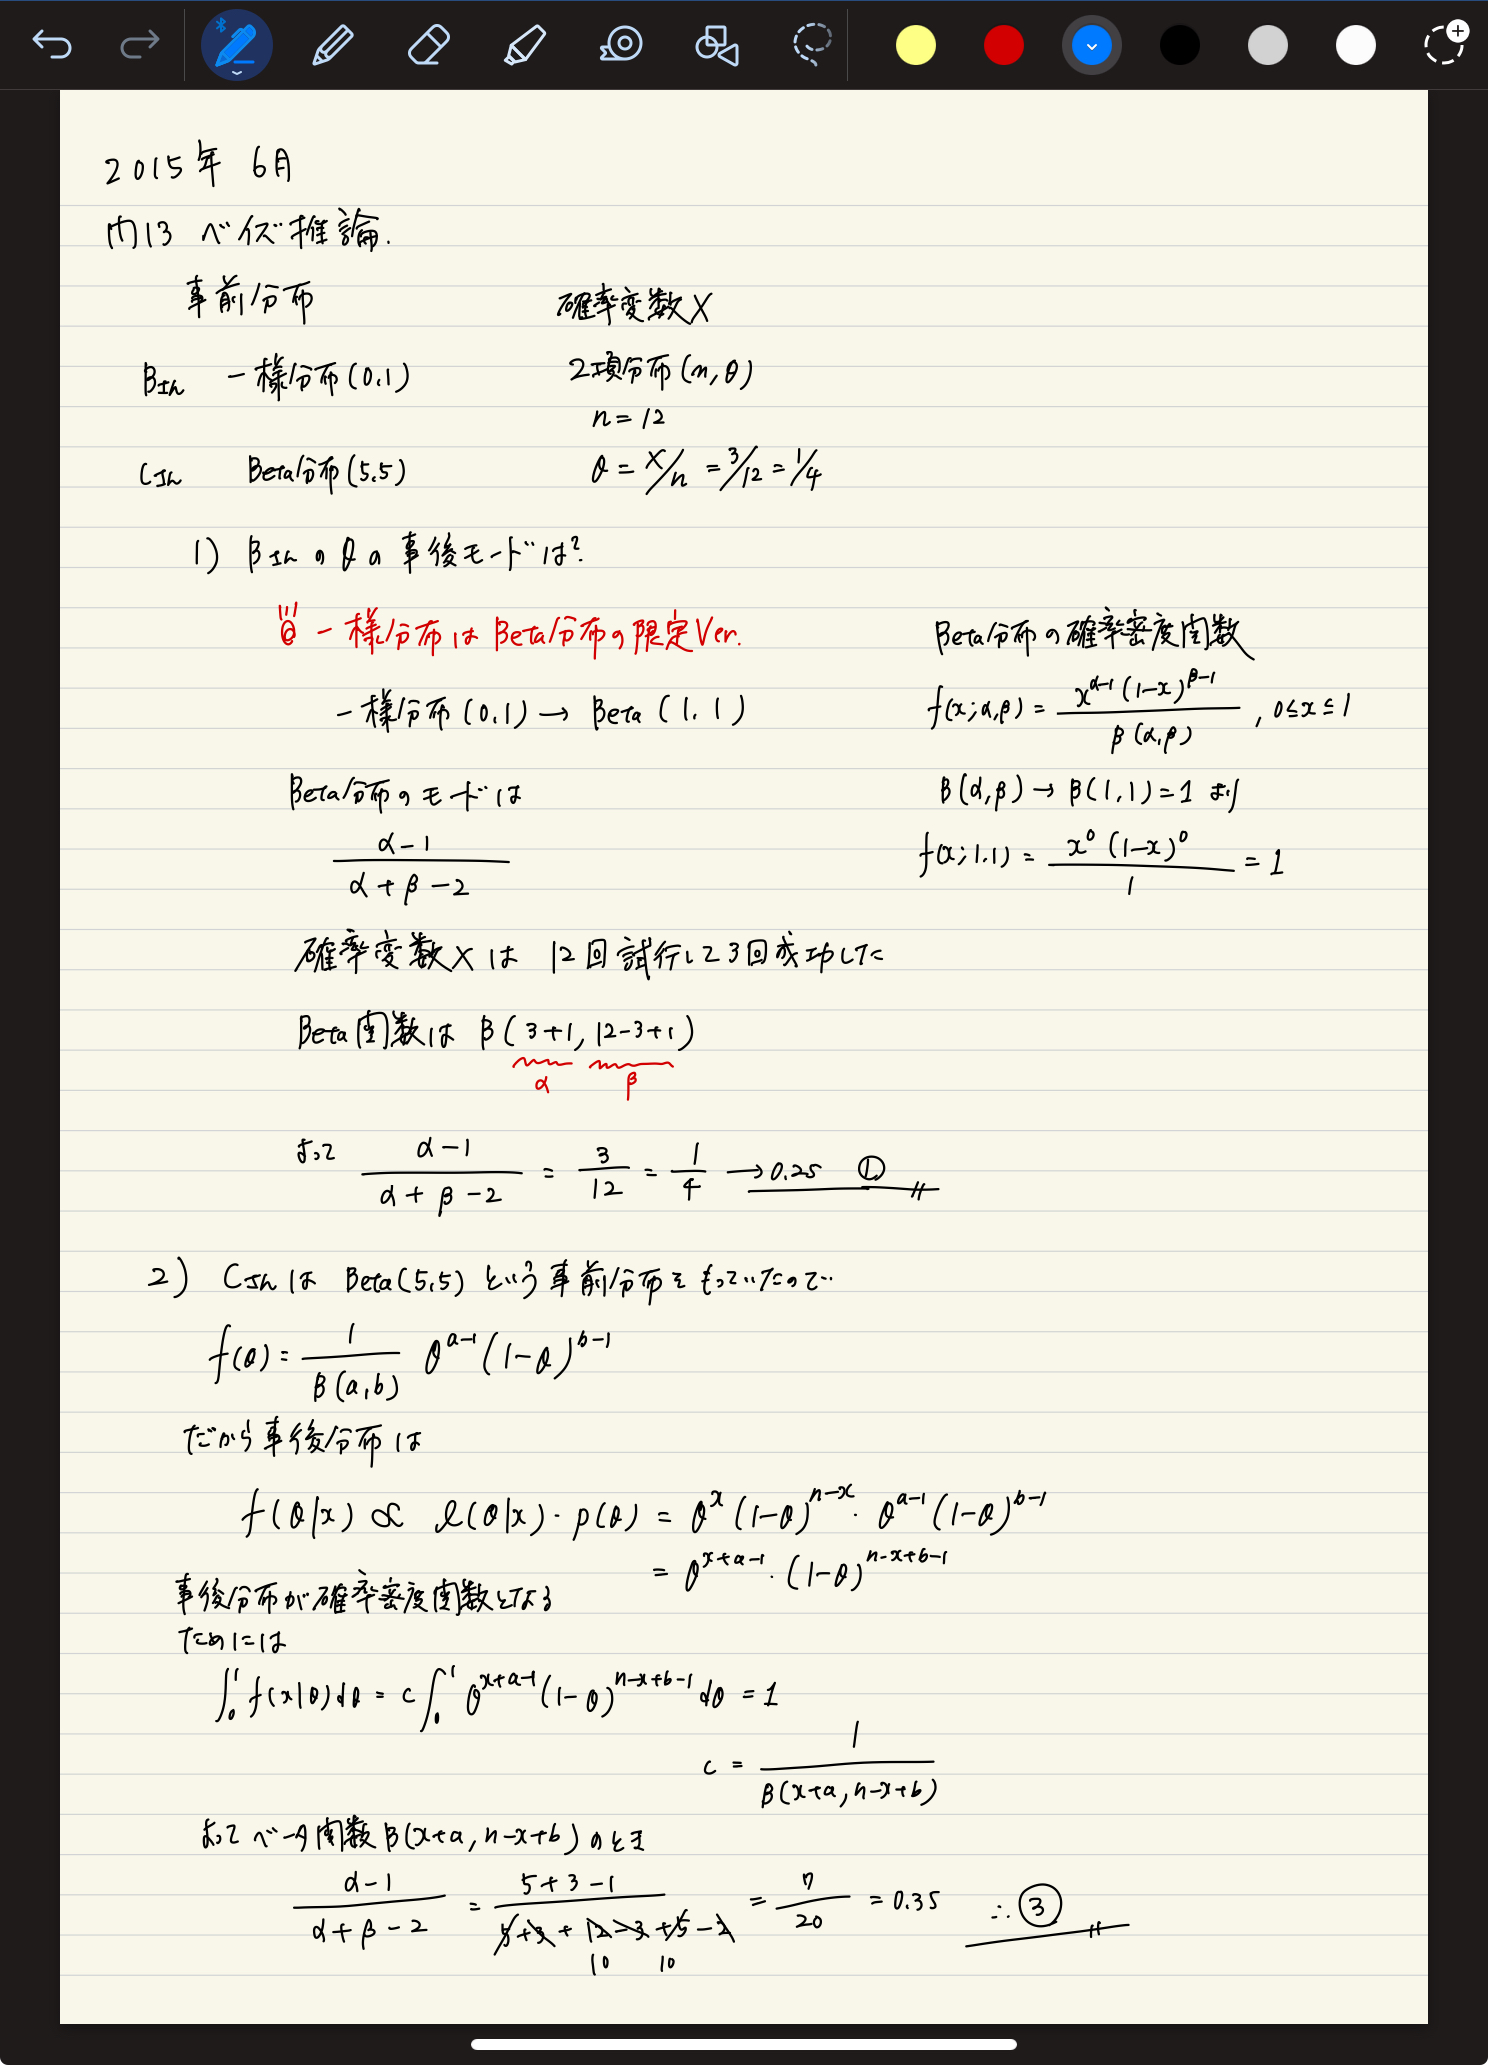 2015年 6月
問13 ベイズ推論.
事前分布 確率変数X
Bさん 一様分布(0,1) 2項分布(n,θ)
n=12
Cさん Beta分布(5,5) θ=X/n=3/12=1/4
1) BさんのθのΘ事後モードは?
一様分布はBeta分布の限定Ver.
Beta分布の確率密度関数
一様分布(0,1)→Beta(1,1)
f(x;α,β)=x^{α-1}(1-x)^{β-1}/β(α,β), 0≤x≤1
Beta分布のモードは
B(α,β)→β(1,1)=1より
(α-1)/(α+β-2)
f(x;1,1)=x^0(1-x)^0/1=1
確率変数Xは 12回試行して3回成功した
Beta関数は β(3+1, 12-3+1)
α β
よって (α-1)/(α+β-2)=3/12=1/4→0.25 ①
2) CさんはBeta(5,5)という事前分布をもっていたので…
f(θ)=1/B(a,b) θ^{a-1}(1-θ)^{b-1}
だから事後分布は
f(θ|x)∝l(θ|x)・p(θ)=θ^x(1-θ)^{n-x}・θ^{a-1}(1-θ)^{b-1}
=θ^{x+a-1}・(1-θ)^{n-x+b-1}
事後分布が確率密度関数となる
ためには
∫_0^1 f(x|θ)dθ=c∫_0^1 θ^{x+a-1}(1-θ)^{n-x+b-1}dθ=1
c=1/β(x+a,n-x+b)
よってベータ関数β(x+a,n-x+b)のとき
(α-1)/(α+β-2)=(5+3-1)/(5+3+12-3+5-2)=7/20=0.35 ∴③
10 10